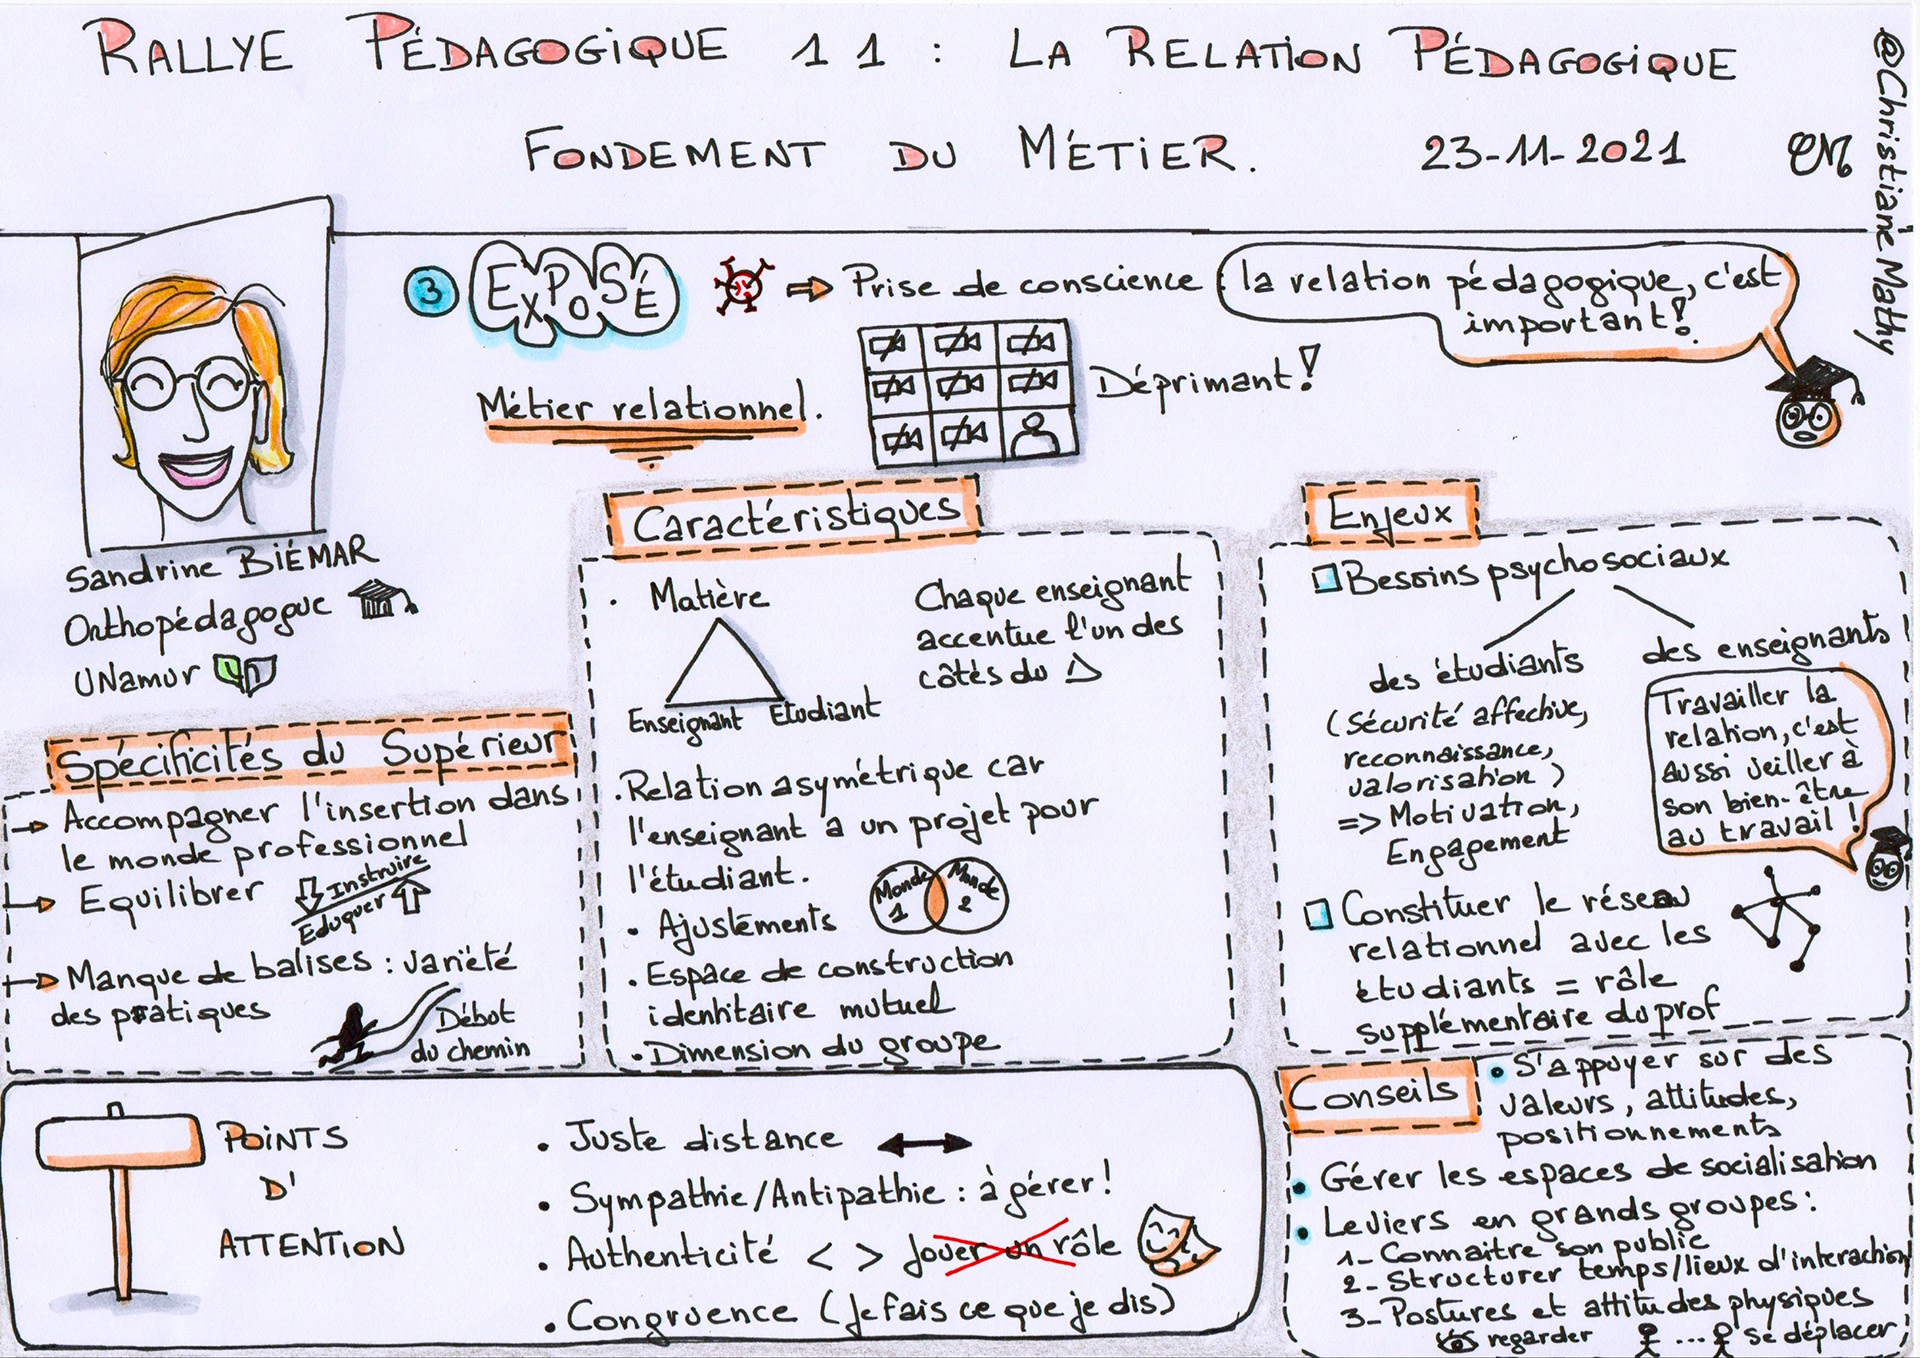 RALLYE PÉDAGOGIQUE 11 : LA RELATION PÉDAGOGIQUE
FONDEMENT DU MÉTIER. 23-11-2021 CM
@Christiane Mathy
3 EXPOSÉ Prise de conscience : la relation pédagogique, c'est
important !
Métier relationnel.
Déprimant !
Sandrine BIÉMAR
Orthopédagogue
UNamur
Spécificités du Supérieur
Accompagner l'insertion dans
le monde professionnel
Equilibrer Instruire
Eduquer
Manque de balises : variété
des pratiques
Début
du chemin
Caractéristiques
. Matière
Enseignant Etudiant
Chaque enseignant
accentue l'un des
côtés du △
. Relation asymétrique car
l'enseignant a un projet pour
l'étudiant.
• Ajustements
Monde 1 Monde 2
• Espace de construction
identitaire mutuel
• Dimension du groupe
Enjeux
Besoins psychosociaux
des étudiants
(Sécurité affective,
reconnaissance,
valorisation)
=> Motivation,
Engagement
des enseignants
Travailler la
relation, c'est
aussi veiller à
son bien-être
au travail !
Constituer le réseau
relationnel avec les
étudiants = rôle
supplémentaire du prof
Conseils
• S'appuyer sur des
valeurs, attitudes,
positionnements
• Gérer les espaces de socialisation
• Leviers en grands groupes :
1- Connaitre son public
2- Structurer temps/lieux d'interaction
3- Postures et attitudes physiques
regarder ... se déplacer
POINTS
D'
ATTENTION
• Juste distance
• Sympathie/Antipathie : à gérer !
• Authenticité < > Jouer un rôle
• Congruence (je fais ce que je dis)